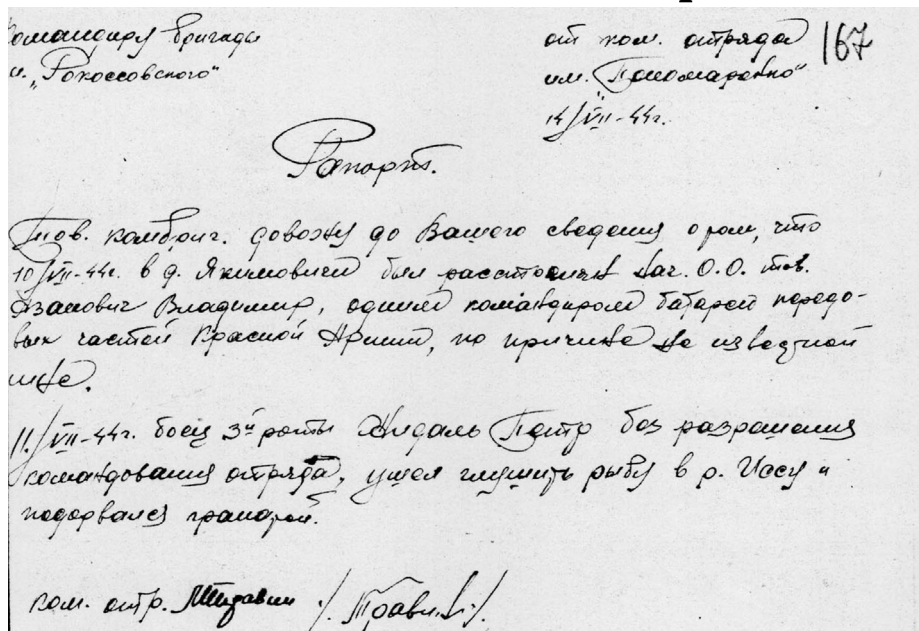 Командиру бригады
и. „Рокоссовского“
от ком. отряда
им. „Пономаренко“
14/VII-44г.
167
Рапорт.
Тов. комбриг. довожу до Вашего сведения о том, что
10/VII-44г. в д. Якимовичи был расстрелян Нач. О.О. тов.
Владимир, одним командиром батареи передо-
вых частей Красной Армии, по причине не известной
мне.
11/VII-44г. боец 3й роты Жидаль Петр без разрешения
командования отряда, ушел глушить рыбу в р. Иссу и
подорвался гранатой.
ком. отр. /Травин./